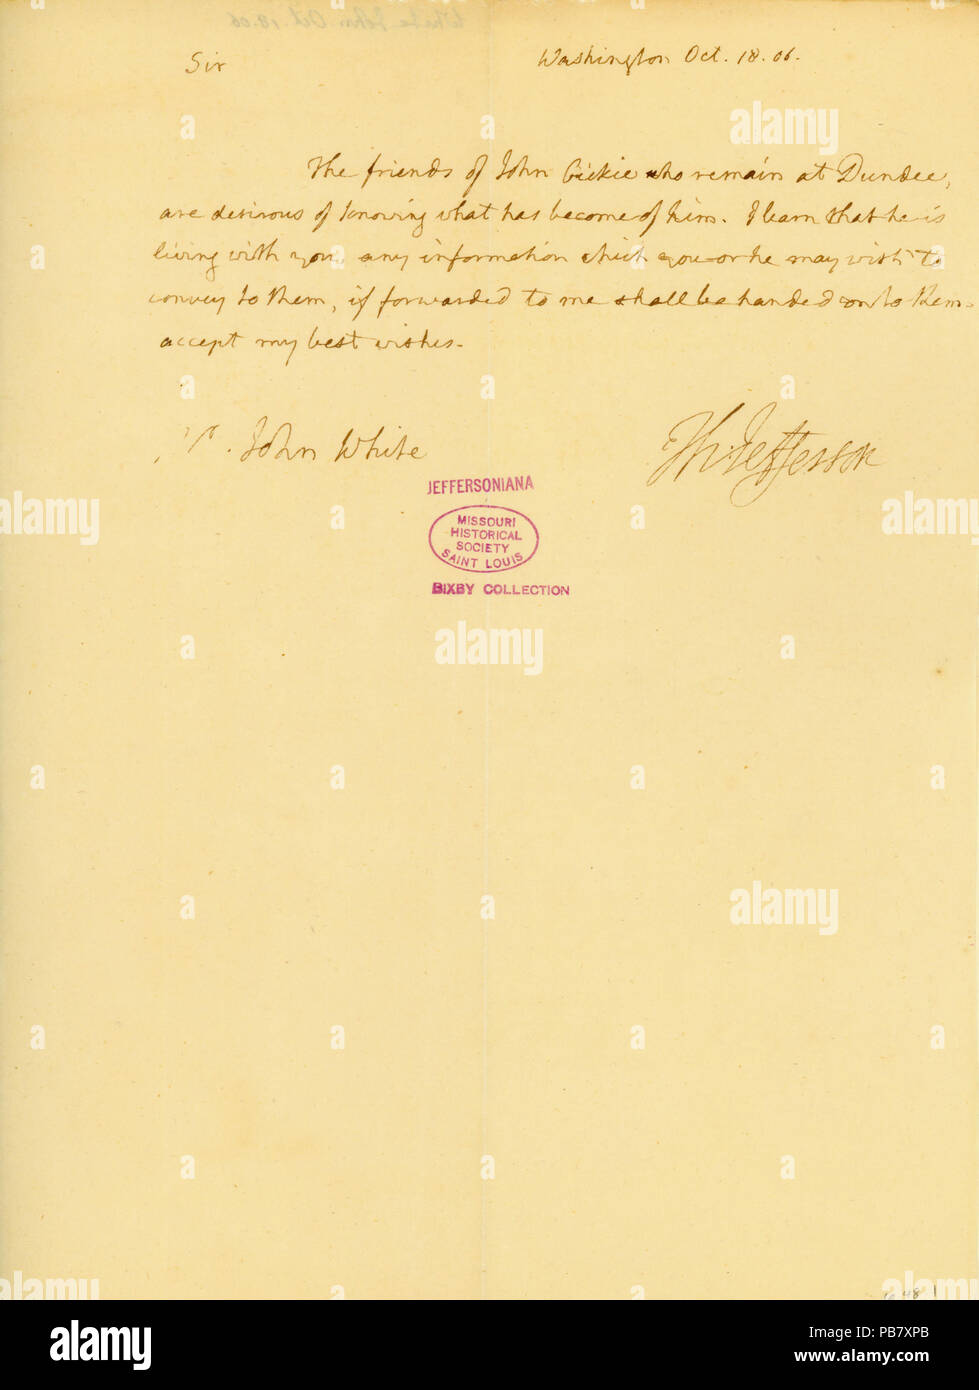 Sir Washington Oct. 18. 06.
The friends of John who remain at Dundee,
are desirous of knowing what has become of him. I learn that he is
living with you. any information which you or he may wish to
convey to them, if forwarded to me shall be handed on to them.
accept my best wishes.
John White Th: Jefferson
JEFFERSONIANA
MISSOURI
HISTORICAL
SOCIETY
SAINT LOUIS
BIXBY COLLECTION
alamy
alamy
Image ID: PB7XPB
www.alamy.com